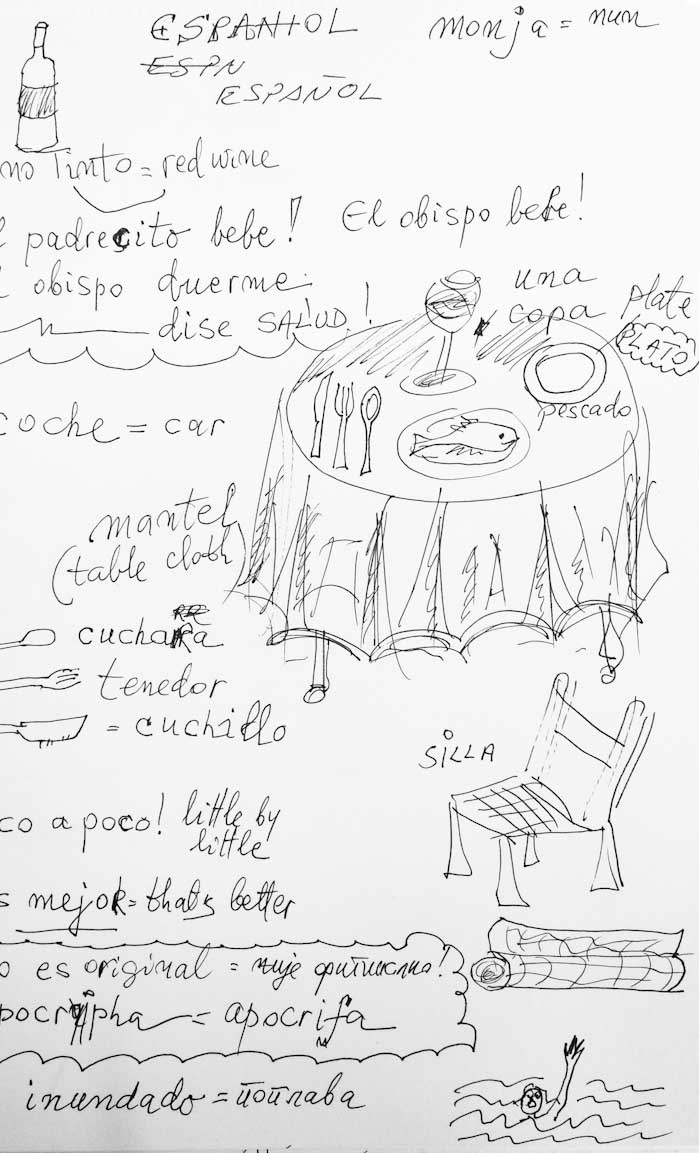 ESPANIOL
monja = nun
ESPN
ESPAÑOL
no Tinto = red wine
padrecito bebe! El obispo bebe!
obispo duerme.
dise SALUD!
una
copa
plate
PLATO
pescado
coche = car
mantel
(table cloth)
cuchara
tenedor
= cuchillo
SILLA
co a poco! little by
little
s mejor = that's better
o es original = није
pocripha = apocrifa
inundado = поплава